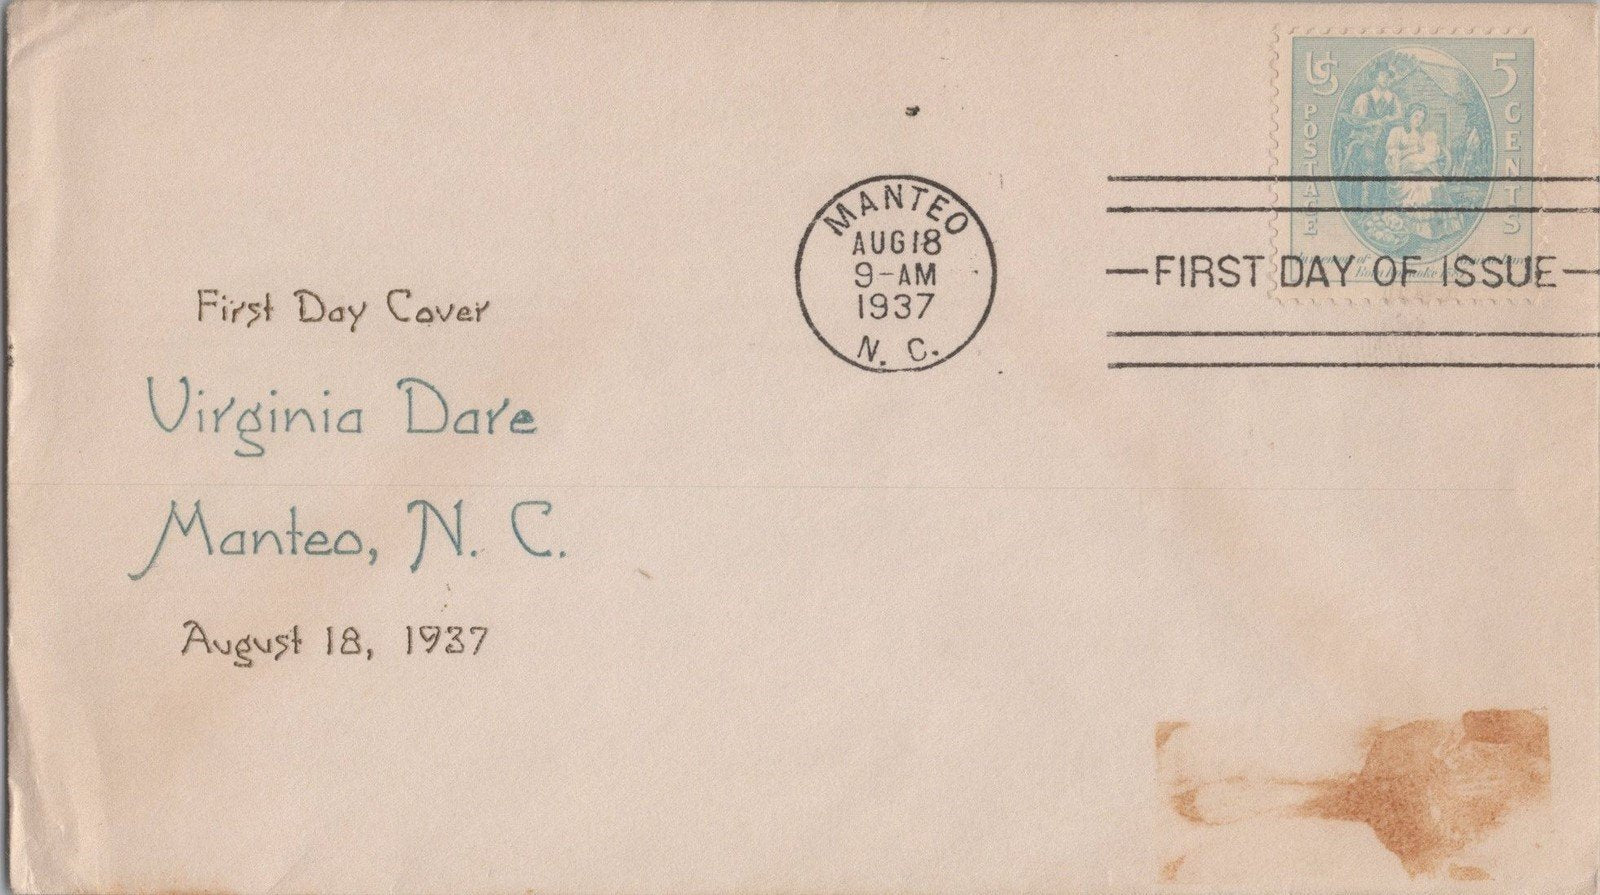 US
5
POSTAGE
CENTS
MANTEO
AUG 18
9-AM
1937
N. C.
FIRST DAY OF ISSUE
First Day Cover
Virginia Dare
Manteo, N. C.
August 18, 1937